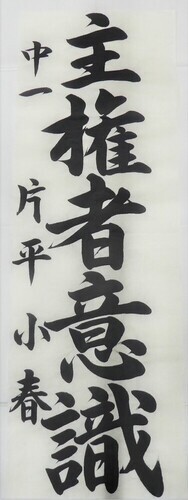 主権者意識
中一 片平小春